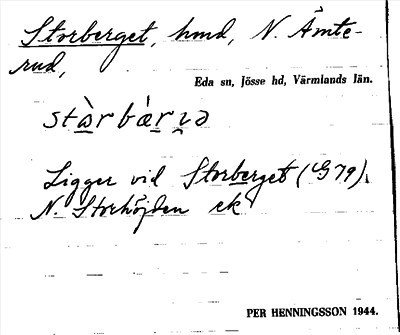 Storberget, hmd, N. Ämte-
rud,
Eda sn, Jösse hd, Värmlands län.
Ligger vid Storberget (LG 79).
N. Storhöjden ek
PER HENNINGSSON 1944.